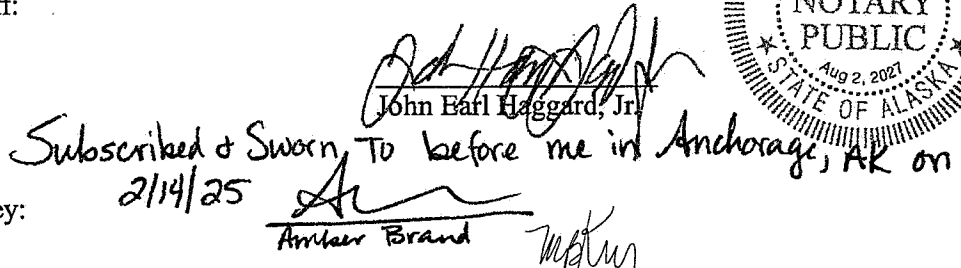 NOTARY
PUBLIC
Aug 2, 2027
STATE OF ALASKA
John Earl Haggard, Jr.
Subscribed & Sworn To before me in Anchorage, AK on
2/14/25
ey:
Amber Brand